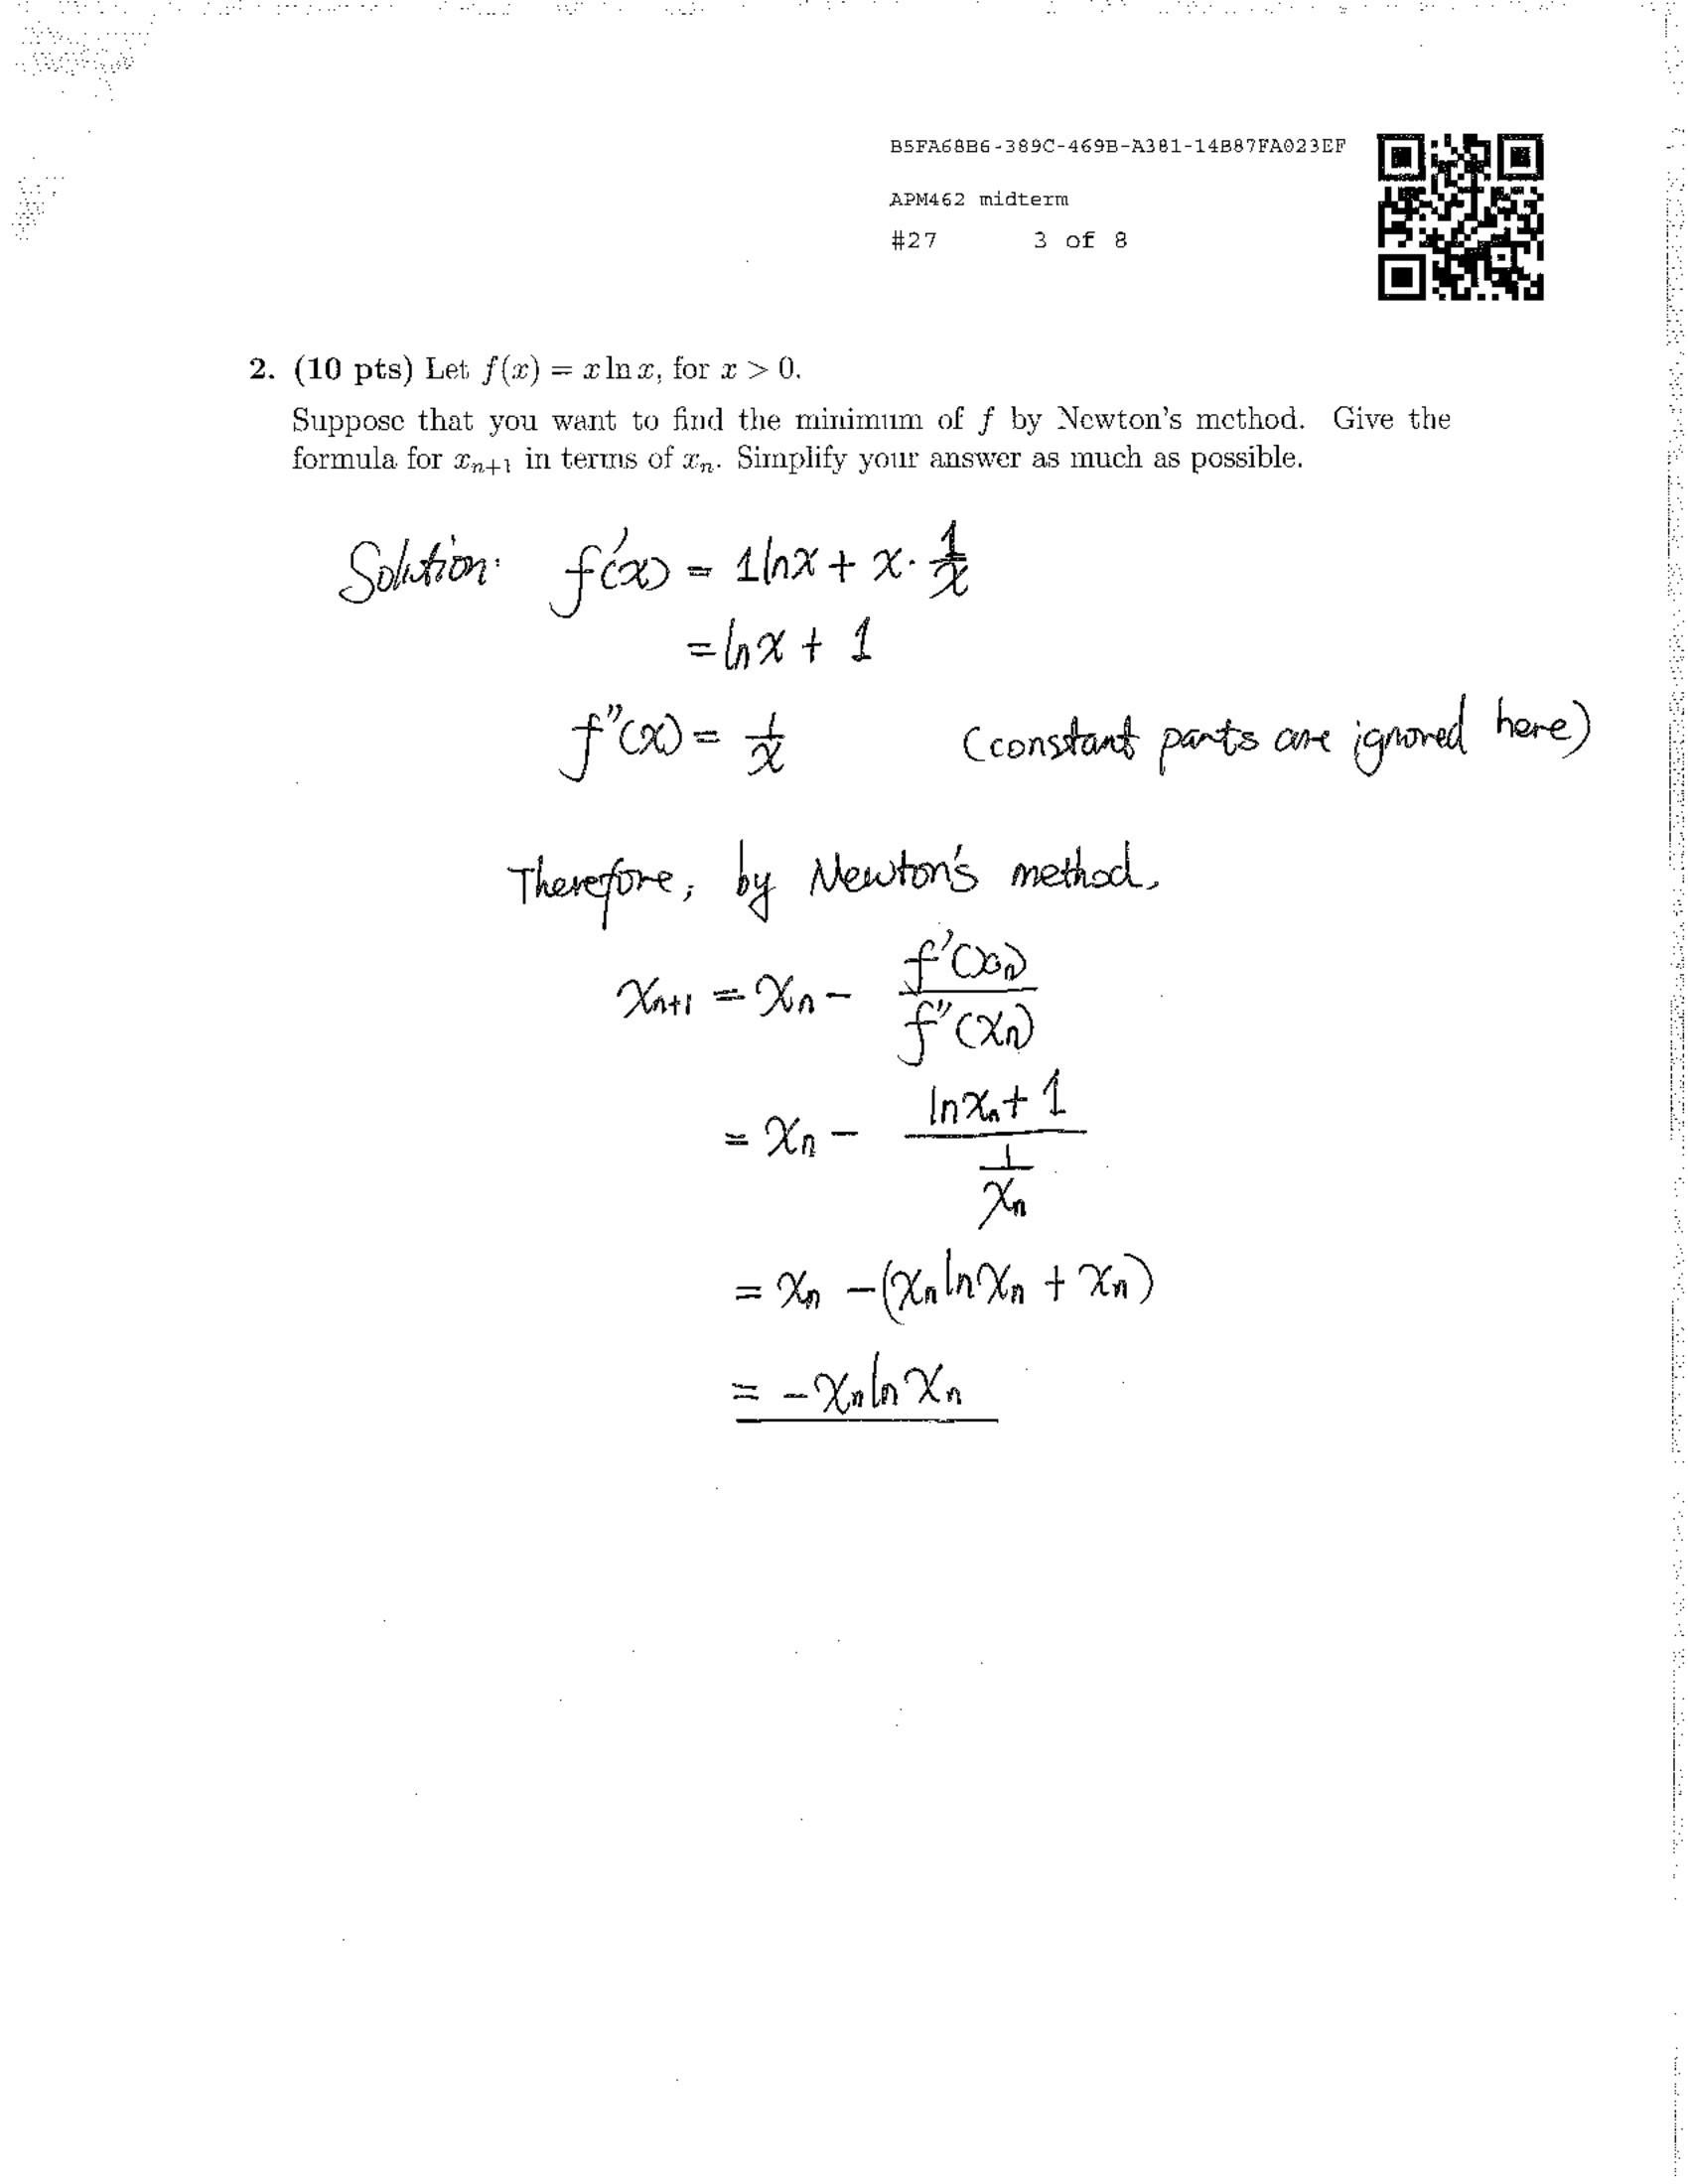 B5FA68B6-389C-469B-A381-14B87FA023EF
APM462 midterm
#27 3 of 8
2. (10 pts) Let f(x) = x ln x, for x > 0.
Suppose that you want to find the minimum of f by Newton's method. Give the
formula for xₙ₊₁ in terms of xₙ. Simplify your answer as much as possible.
Solution: f'(x) = 1 ln x + x · 1/x
= ln x + 1
f''(x) = 1/x (constant parts are ignored here)
Therefore, by Newton's method,
xₙ₊₁ = xₙ - f'(xₙ)/f''(xₙ)
= xₙ - (ln xₙ + 1)/(1/xₙ)
= xₙ - (xₙ ln xₙ + xₙ)
= - xₙ ln xₙ